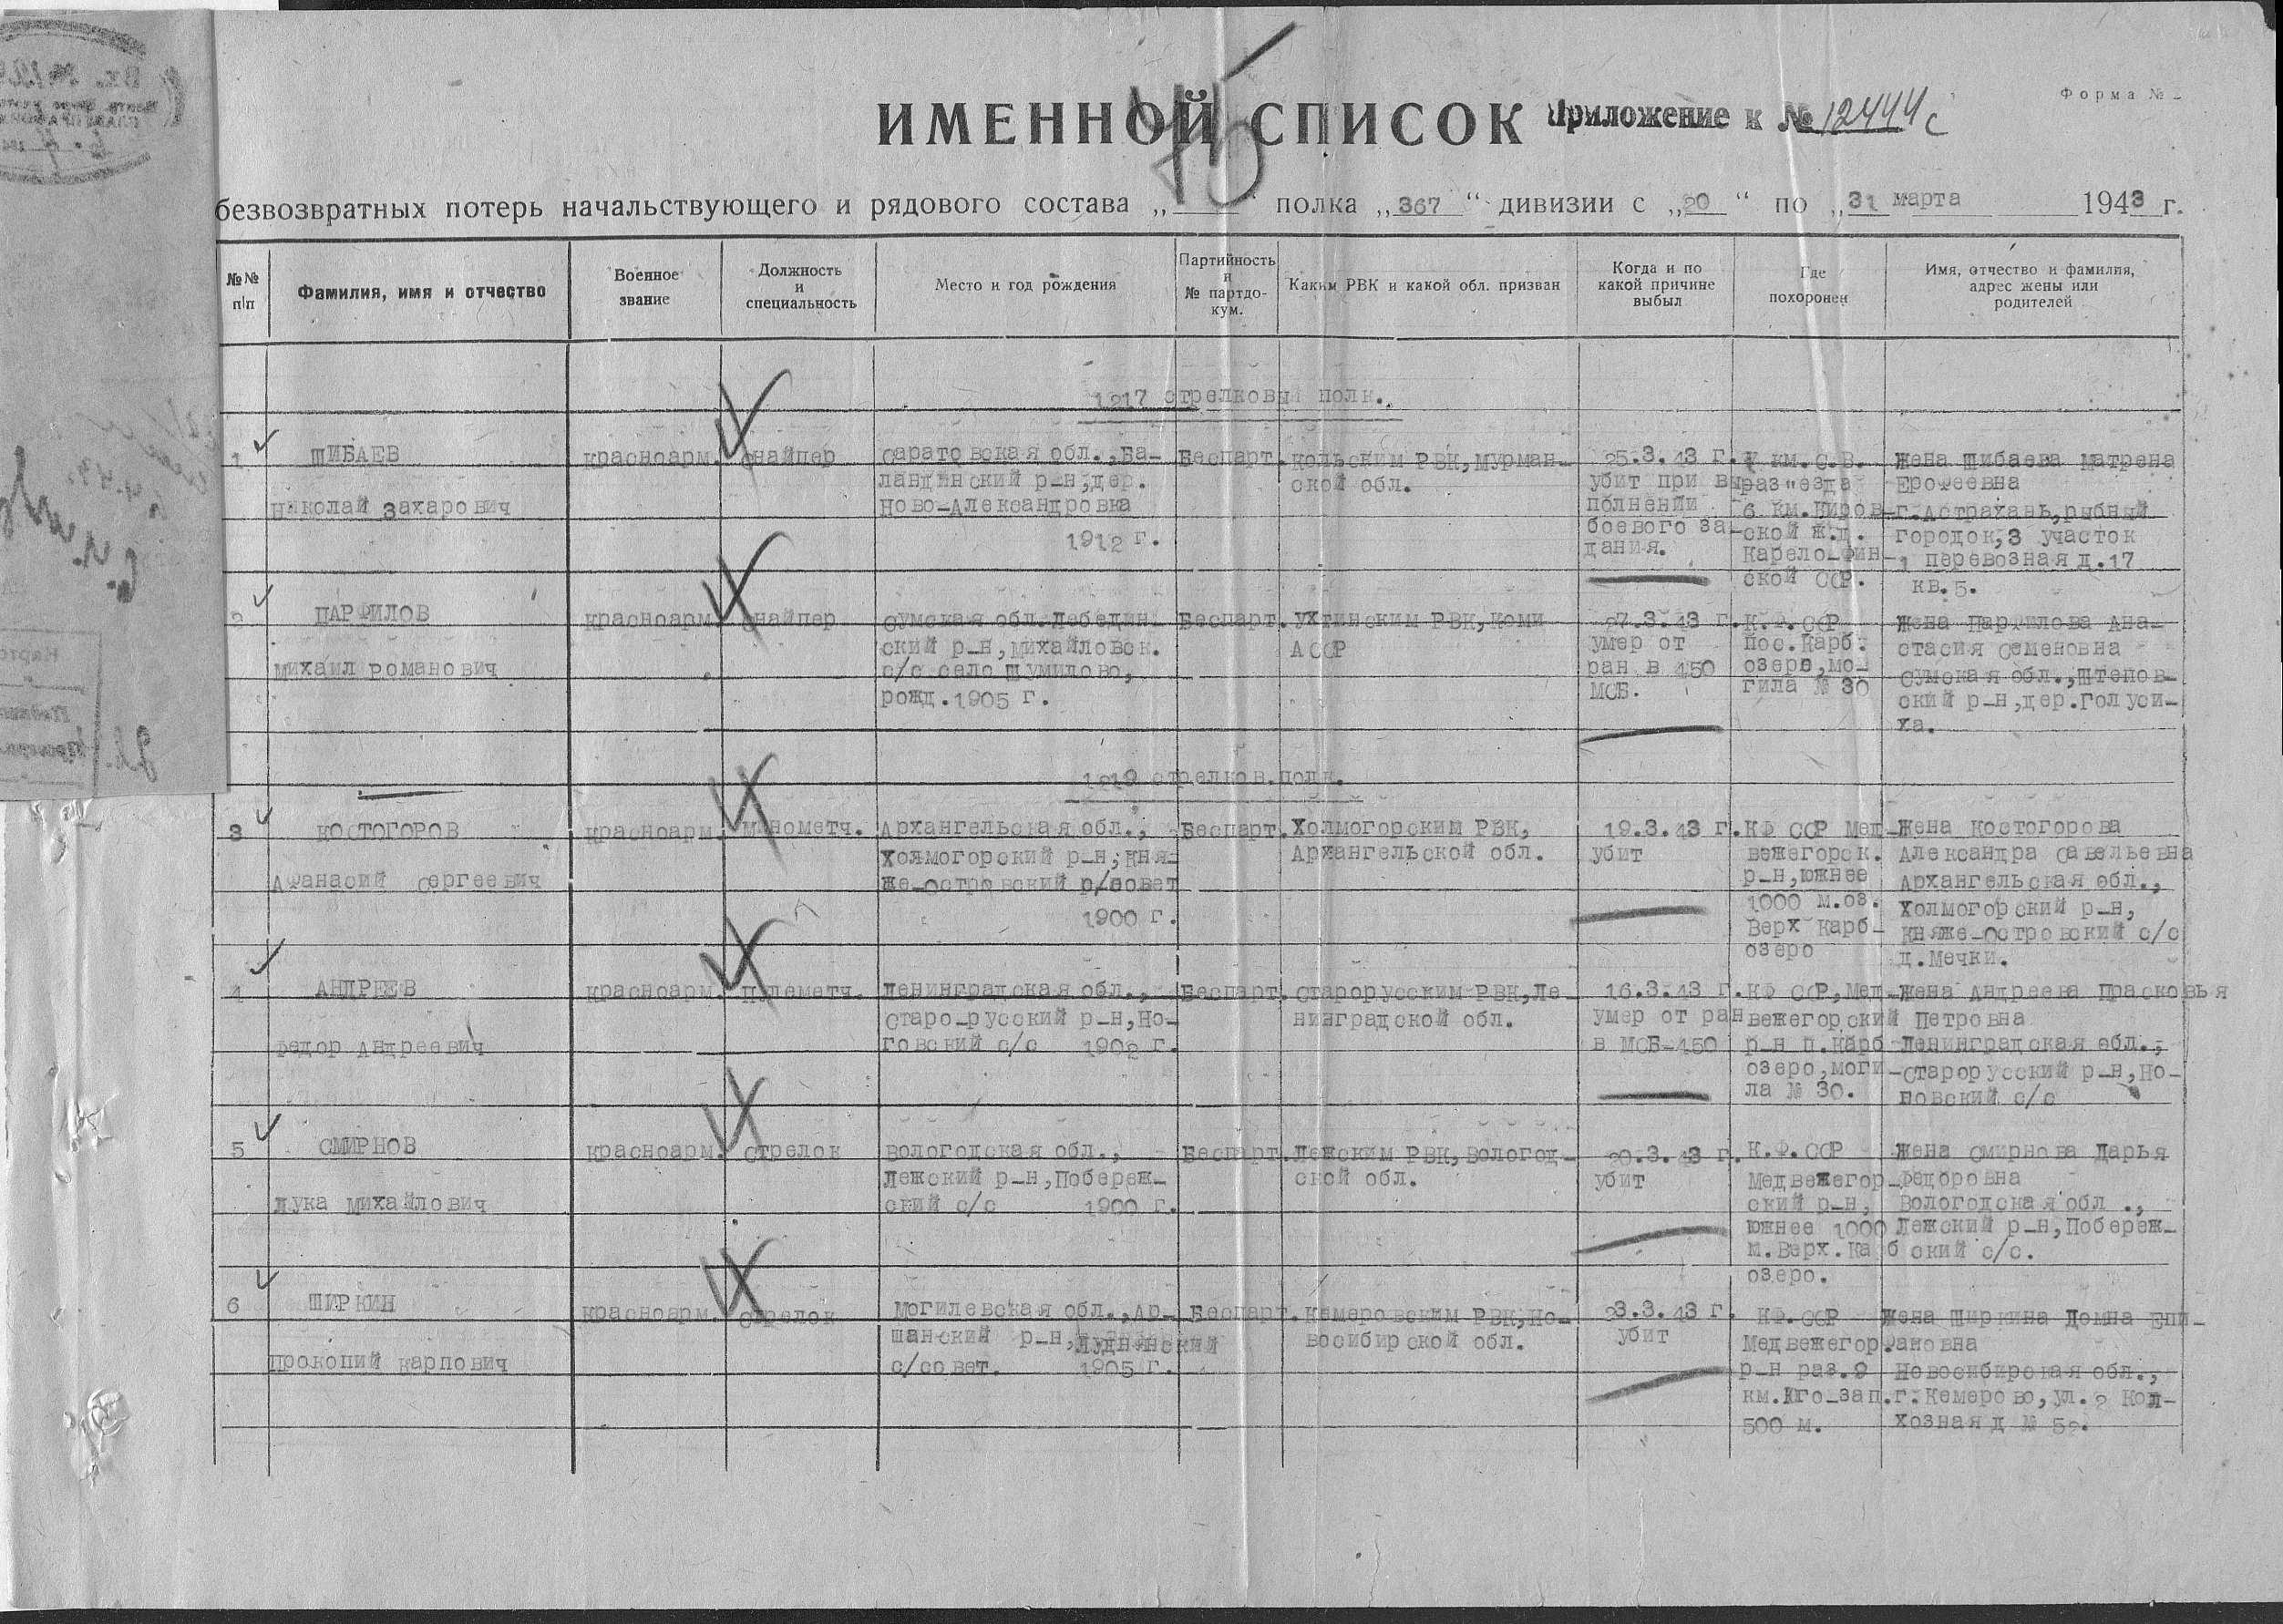 Форма №
ИМЕННОЙ СПИСОК Приложение к № 12444с
75
безвозвратных потерь начальствующего и рядового состава „ “ полка „367“ дивизии с „20“ по „31 марта 1943 г.
№№ п/п
Фамилия, имя и отчество
Военное звание
Должность и специальность
Место и год рождения
Партийность и № партдокум.
Каким РВК и какой обл. призван
Когда и по какой причине выбыл
Где похоронен
Имя, отчество и фамилия, адрес жены или родителей
1217 стрелковый полк.
1
ШИБАЕВ
Николай Захарович
красноарм.
снайпер
Саратовская обл., Ба-
ландинский р-н, дер.
Ново-Александровка
1912 г.
Беспарт.
Кольским РВК, Мурман-
ской обл.
25.3.43 г.
убит при вы
полнении
боевого за-
дания.
км. С.В.
раз"езда
6 км. Киров-
ской ж.д.
Карело-Фин-
ской ССР.
Жена Шибаева Матрена
Ерофеевна
г. Астрахань, рыбный
городок, 3 участок
1 перевозная д.17
кв.5.
2
ПАРФИЛОВ
Михаил Романович
красноарм.
снайпер
Сумская обл. Лебедин-
ский р-н, Михайловск.
с/с село Шумилово,
рожд. 1905 г.
Беспарт.
Ухтинским РВК, Коми
АССР
27.3.43 г.
умер от
ран в 450
МСБ.
К.Ф. ССР
пос. Карб.
озеро, мо-
гила № 30
Жена Парфилова Ана-
стасия Семеновна
Сумская обл., Штепов-
ский р-н, дер. Голуси-
ха.
1219 стрелков. полк.
3
КОСТОГОРОВ
Афанасий Сергеевич
красноарм.
минометч.
Архангельская обл.,
Холмогорский р-н, Кня-
же-островский с/совет
1900 г.
Беспарт.
Холмогорским РВК,
Архангельской обл.
19.3.43 г.
убит
КФ ССР Мед-
вежегорск.
р-н, южнее
1000 м. оз.
Верх Карб-
озеро
Жена Костогорова
Александра Савельевна
Архангельская обл.,
Холмогорский р-н,
Княже-Островский с/с
д. Мечки.
4
АНДРЕЕВ
Федор Андреевич
красноарм.
пулеметч.
Ленинградская обл.,
Старо-русский р-н, Но-
говский с/с 1902 г.
Беспарт.
Старорусским РВК, Ле-
нинградской обл.
16.3.43 г.
умер от ран
в МСБ-450
КФ ССР, Мед-
вежегорский
р-н п. Карб
озеро, моги-
ла № 30.
Жена Андреева Прасковья
Петровна
Ленинградская обл.,
Старорусский р-н, Но-
повский с/с
5
СМИРНОВ
Лука Михайлович
красноарм.
стрелок
Вологодская обл.,
Лежский р-н, Побереж-
ский с/с 1900 г.
Беспарт.
Лежским РВК, Вологод-
ской обл.
20.3.43 г.
убит
К.Ф. ССР
Медвежегор-
ский р-н,
южнее 1000
м. Верх. Ка б
озеро.
Жена Смирнова Дарья
Федоровна
Вологодская обл.,
Лежский р-н, Побереж-
ский с/с.
6
ШИРКИН
Прокопий Карпович
красноарм.
стрелок
Могилевская обл., Ар-
шанский р-н, Луднянский
с/совет. 1905 г.
Беспарт.
Кемеровским РВК, Но-
восибирской обл.
23.3.43 г.
убит
КФ. ССР
Медвежегор
р-н раз. 9
км. Юго-зап.
500 м.
Жена Ширкина Домна Епи-
фановна
Новосибирская обл.,
г. Кемерово, ул. 2 Кол-
хозная д № 52.